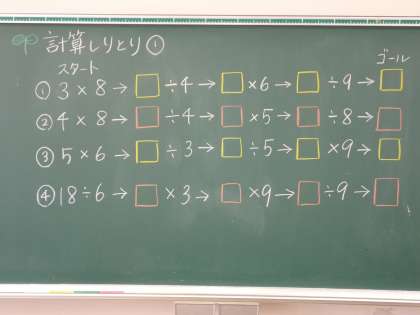 計算しりとり①
スタート
ゴール
① 3×8→□÷4→□×6→□÷9→□
② 4×8→□÷4→□×5→□÷8→□
③ 5×6→□÷3→□÷5→□×9→□
④ 18÷6→□×3→□×9→□÷9→□